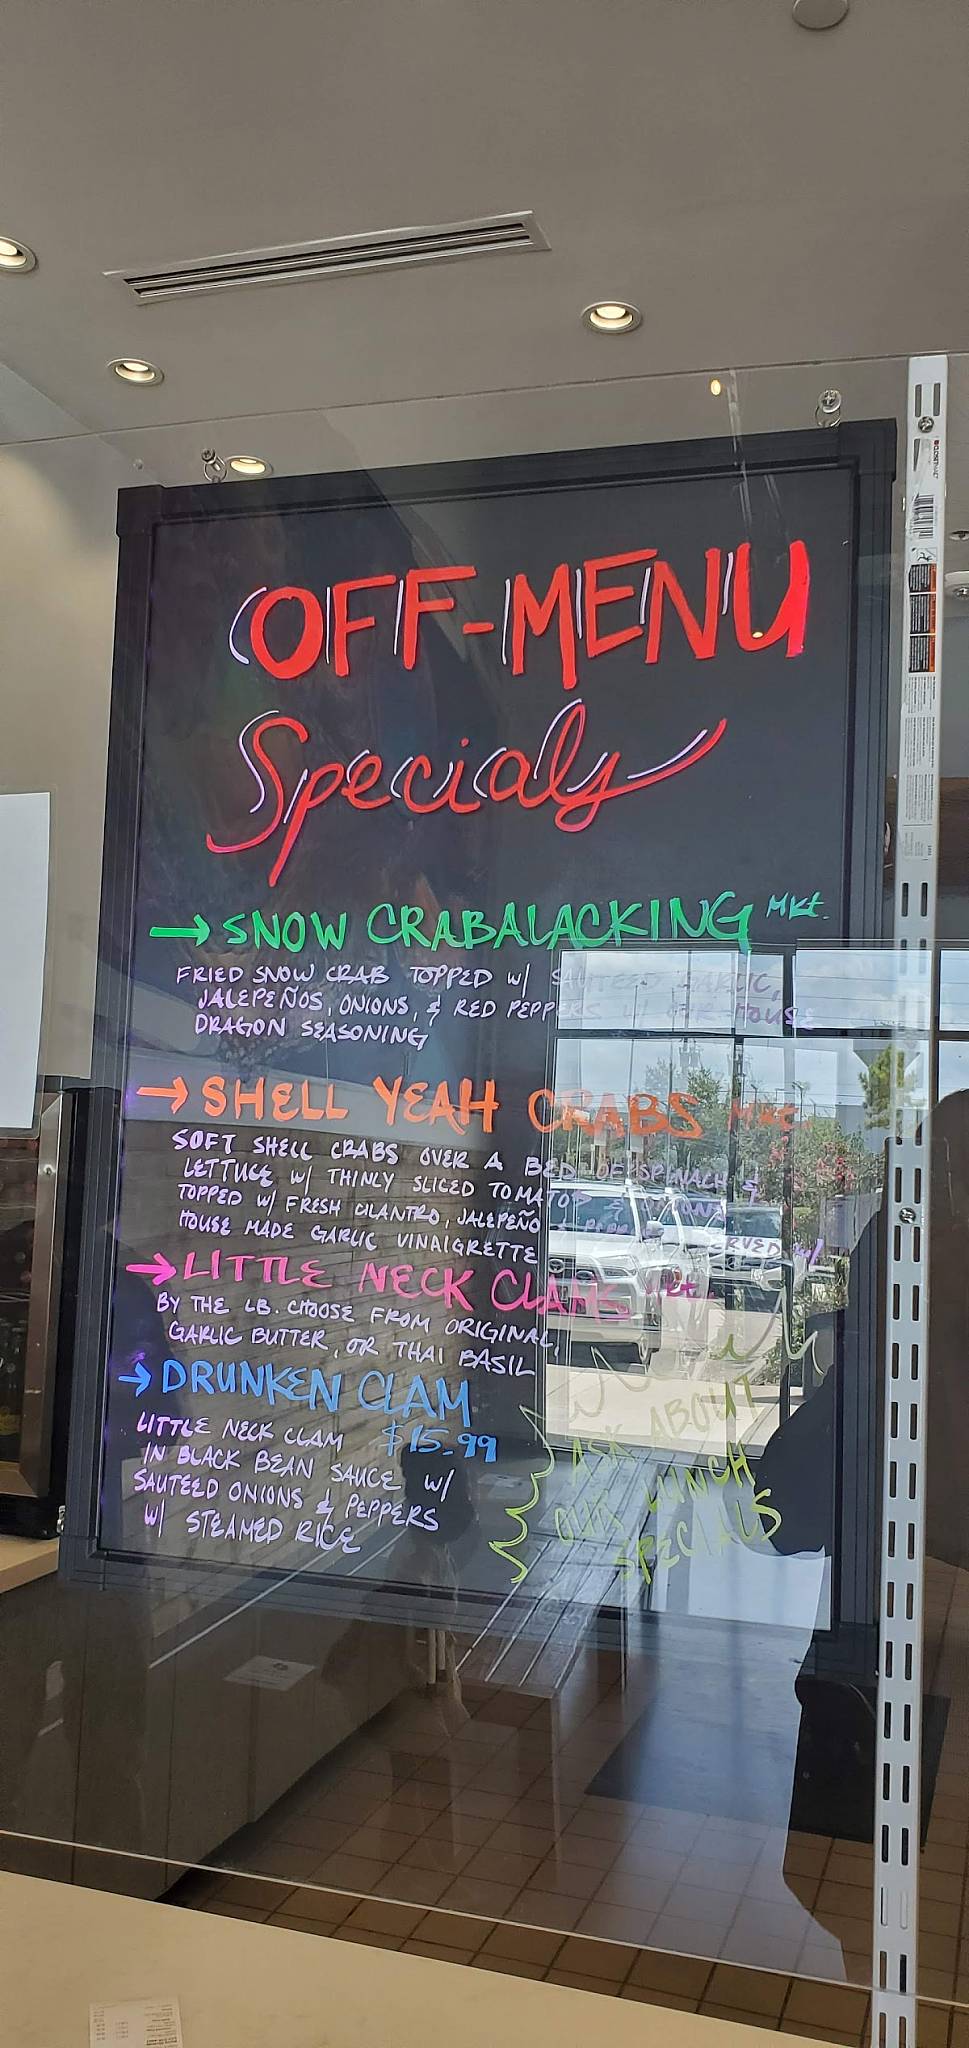 OFF-MENU
Specials
→ SNOW CRABALACKING Mkt.
FRIED SNOW CRAB TOPPED w/ SAUTEED GARLIC,
JALEPEÑOS, ONIONS, & RED PEPPERS w/ OUR HOUSE
DRAGON SEASONING
→ SHELL YEAH CRABS Mkt.
SOFT SHELL CRABS OVER A BED OF SPINACH &
LETTUCE w/ THINLY SLICED TOMATOES & ONIONS
TOPPED w/ FRESH CILANTRO, JALEPEÑO SERVED w/
HOUSE MADE GARLIC VINAIGRETTE
→ LITTLE NECK CLAMS Mkt.
BY THE LB. CHOOSE FROM ORIGINAL,
GARLIC BUTTER, OR THAI BASIL
→ DRUNKEN CLAM
$15.99
LITTLE NECK CLAM
IN BLACK BEAN SAUCE w/
SAUTEED ONIONS & PEPPERS
w/ STEAMED RICE
ASK ABOUT
OUR LUNCH
SPECIALS